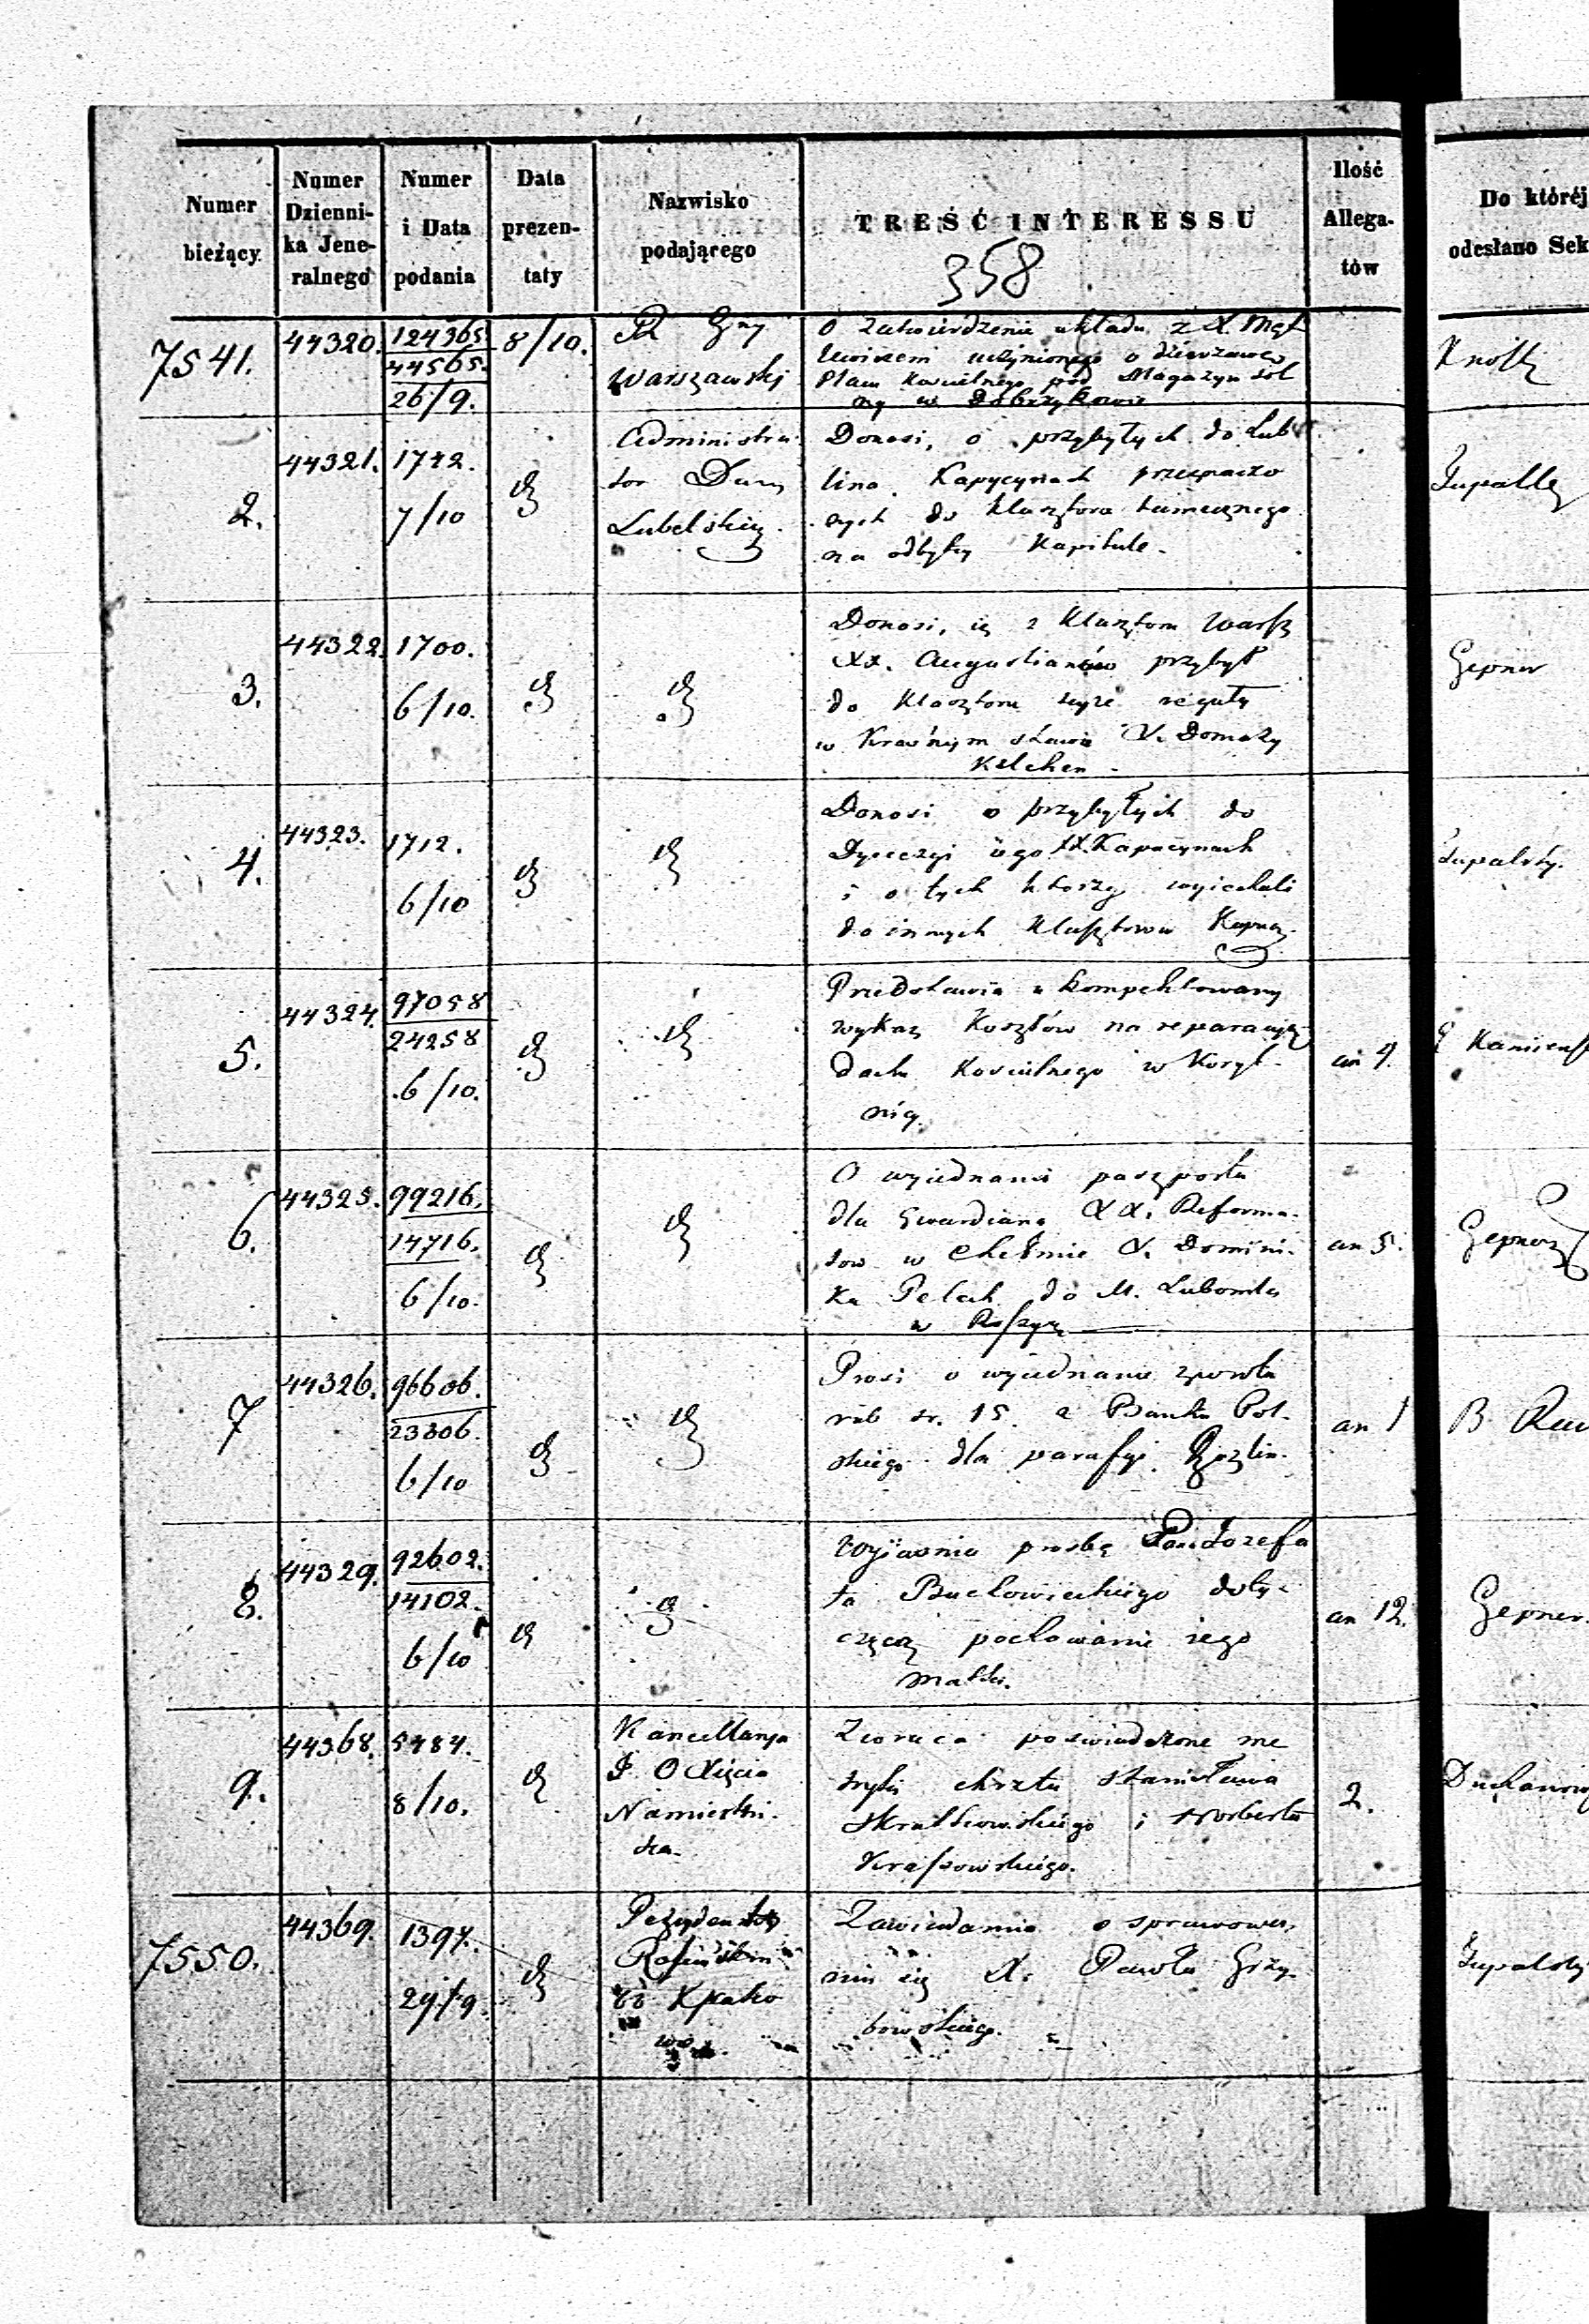 Numer bieżący.
Numer Dzienni-ka Jene-ralnego
Numer i Data podania
Data prezen-taty
Nazwisko podającego
TREŚĆ INTERESSU
Ilość Allega-tów
Do któréj odesłano Sek
358
7541.
44320.
124365
44565.
26/9.
8/10.
Rz Gny
Warszawskj
O zatwierdzenie układu z X.
uczynionego o dzierżawę
Placu Kościelnego pod Magazyn Sol
ny w Dobrzykowie
2.
44321.
1742.
7/10
Administra
tor Dycz
Lubelskiej.
Donosi, o przybyłych do Lub
lina Kapucynach przeznaczo
nych do klasztoru tamecznego
na odbytej Kapitule.
3.
44322.
1700.
6/10.
Donosi, iż z Klasztoru Warsz
XX. Augustianów przybył
do Klasztoru tejże reguły
w Krasnym stawie X. Domazy
Kelchen.
Gepner
4.
44323.
1712.
6/10
Donosi o przybyłych do
Dyecezyi jego XX. Kapucynach
i o tych którzy wyjechali
do innych Klasztorów Kapuc.
5.
44324.
97058
24258
6/10.
Przedstawia
wykaz Kosztów na reparacyą
dachu Kościelnego w Koryt-
nicy.
an 9.
Kamieńs
6.
44325.
99216.
14716.
6/10.
O wyjednanie paszportu
dla Gwardiana XX. Reforma-
tow w Chełmie X. Domini-
ka Pelch do M. Lubomla
w Rossyi
an 5.
Gepner
7
44326.
96606.
23306.
6/10
Prosi o wyjednanie zwrotu
rub sr. 15. z Banku Pol-
skiego dla parafyi
an 1
B
8.
44329.
92602.
14102.
6/10
Wyjaśnia prośbę Pana Jozefa
ta Buchowieckiego doty-
czącą pochowanie jego
matki.
an 12.
Gepner.
9.
44368.
5484.
8/10.
Kancellarya
J. O Xięcia
Namiestni-
ka.
Zwraca poświadczone me
tryki chrztu Stanisława
Skrutkowskiego i Norberta
Krassowskiego.
2.
7550.
44369.
1397.
29/9.
Zawiadamia o sprawowa-
niu się X. Pawła Grzy-
bowskiego.